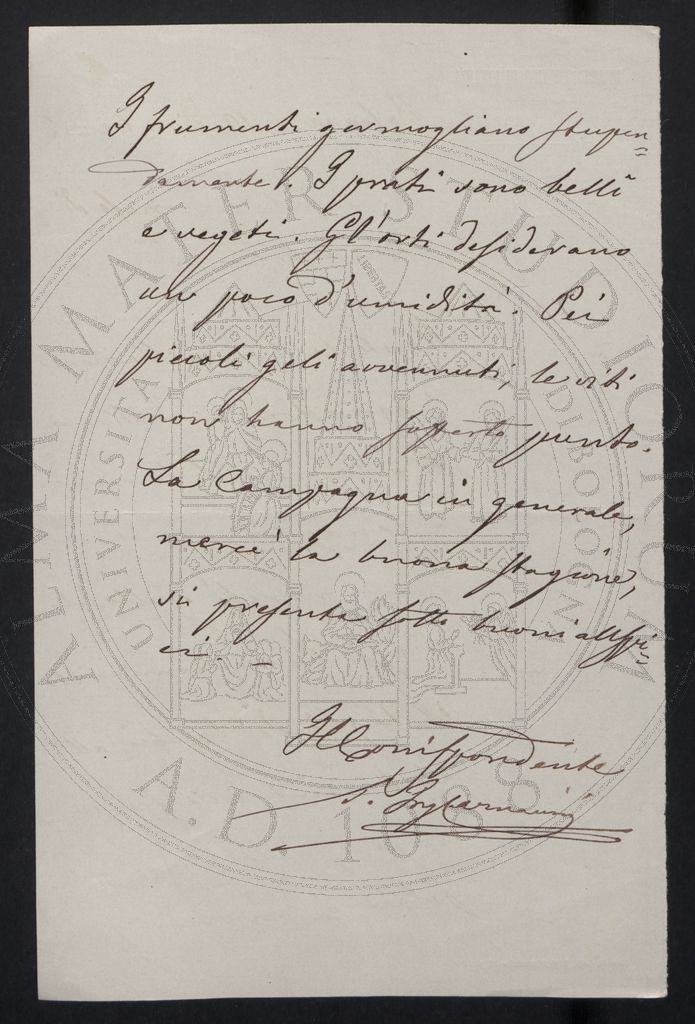 I frumenti germogliano stupen=
damente. I prati sono belli
e vegeti. Gl'orti desiderano
un poco d'umidità. Pei
piccoli geli avvennuti, le viti
non hanno sofferto punto.
La Campagna in generale,
mercè la buona stagione,
si presenta sotto buoni auspi=
ci. —
Il Corrispondente
ALMA MATER STUDIORUM
UNIVERSITÀ DI BOLOGNA
A.D. 1088